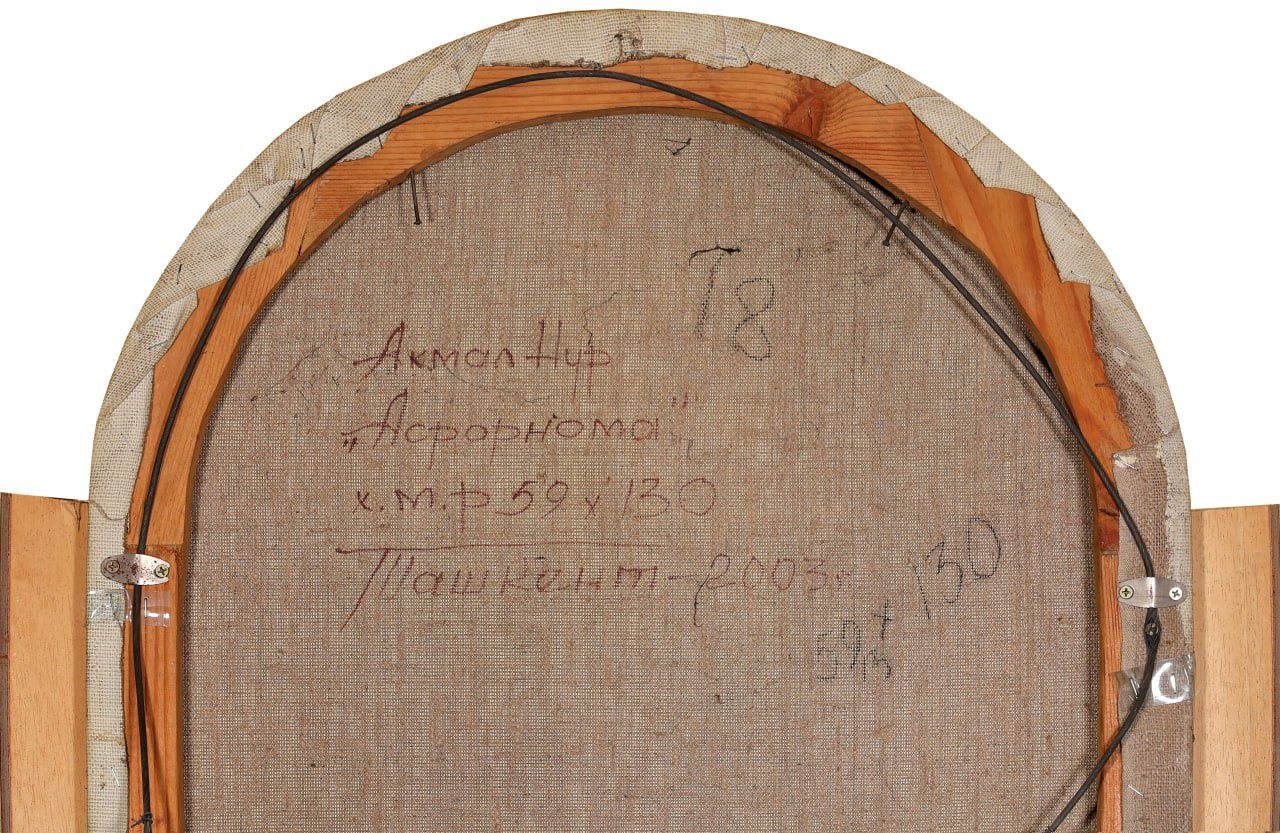 Т 8
Акмал Нур
„Асрорнома"
х.м.р 59 х 130
Ташкент - 2003г.
130
59 х